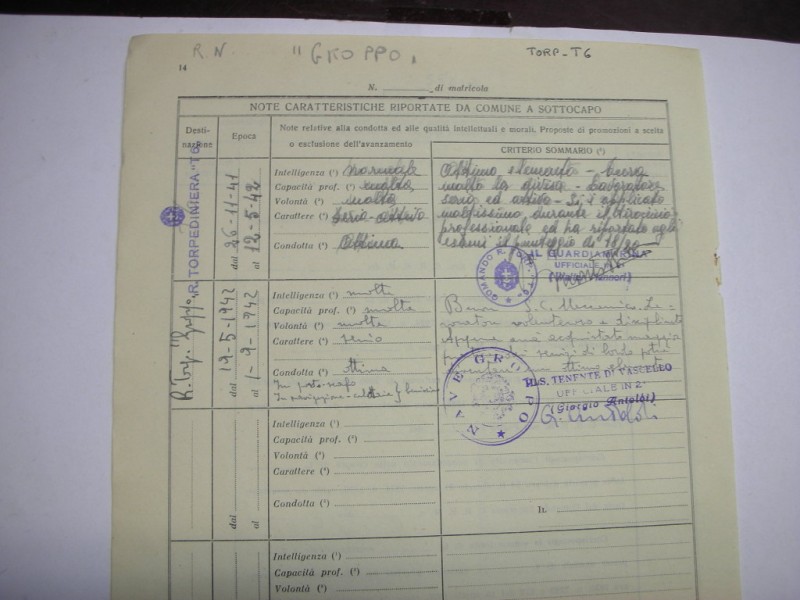 R. N. "GROPPO" TORP-T6
14
N. di matricola
NOTE CARATTERISTICHE RIPORTATE DA COMUNE A SOTTOCAPO
Desti-
nazione
Epoca
Note relative alla condotta ed alle qualità intellettuali e morali. Proposte di promozioni a scelta
o esclusione dell'avanzamento
CRITERIO SOMMARIO (²)
R. TORPEDINIERA "T6"
dal 26-11-41
al 12-5-42
Intelligenza (¹) normale
Capacità prof. (¹) molta
Volontà (¹) molta
Carattere (¹) serio-attivo
Condotta (¹) ottima
Ottimo elemento - Lavoratore
serio ed attivo - Si è applicato
moltissimo durante il tirocinio
professionale ed ha riportato agli
esami il punteggio di
COMANDO R.
IL GUARDIAMARINA
UFFICIALE
R. Torp. "Groppo"
dal 19-5-1942
al 1-9-1942
Intelligenza (¹) molta
Capacità prof. (¹) molta
Volontà (¹) molta
Carattere (¹) serio
Condotta (¹) ottima
In porto
In navigazione
Buon S.C. Meccanico. La-
voratore volenteroso e disciplinato
servizi di bordo potrà
NAVE GROPPO
IL S. TENENTE DI VASCELLO
UFFICIALE IN 2ª
(Giorgio Antoldi)
G. Antoldi
dal
al
Intelligenza (¹)
Capacità prof. (¹)
Volontà (¹)
Carattere (¹)
Condotta (¹)
Il
Intelligenza (¹)
Capacità prof. (¹)
Volontà (¹)